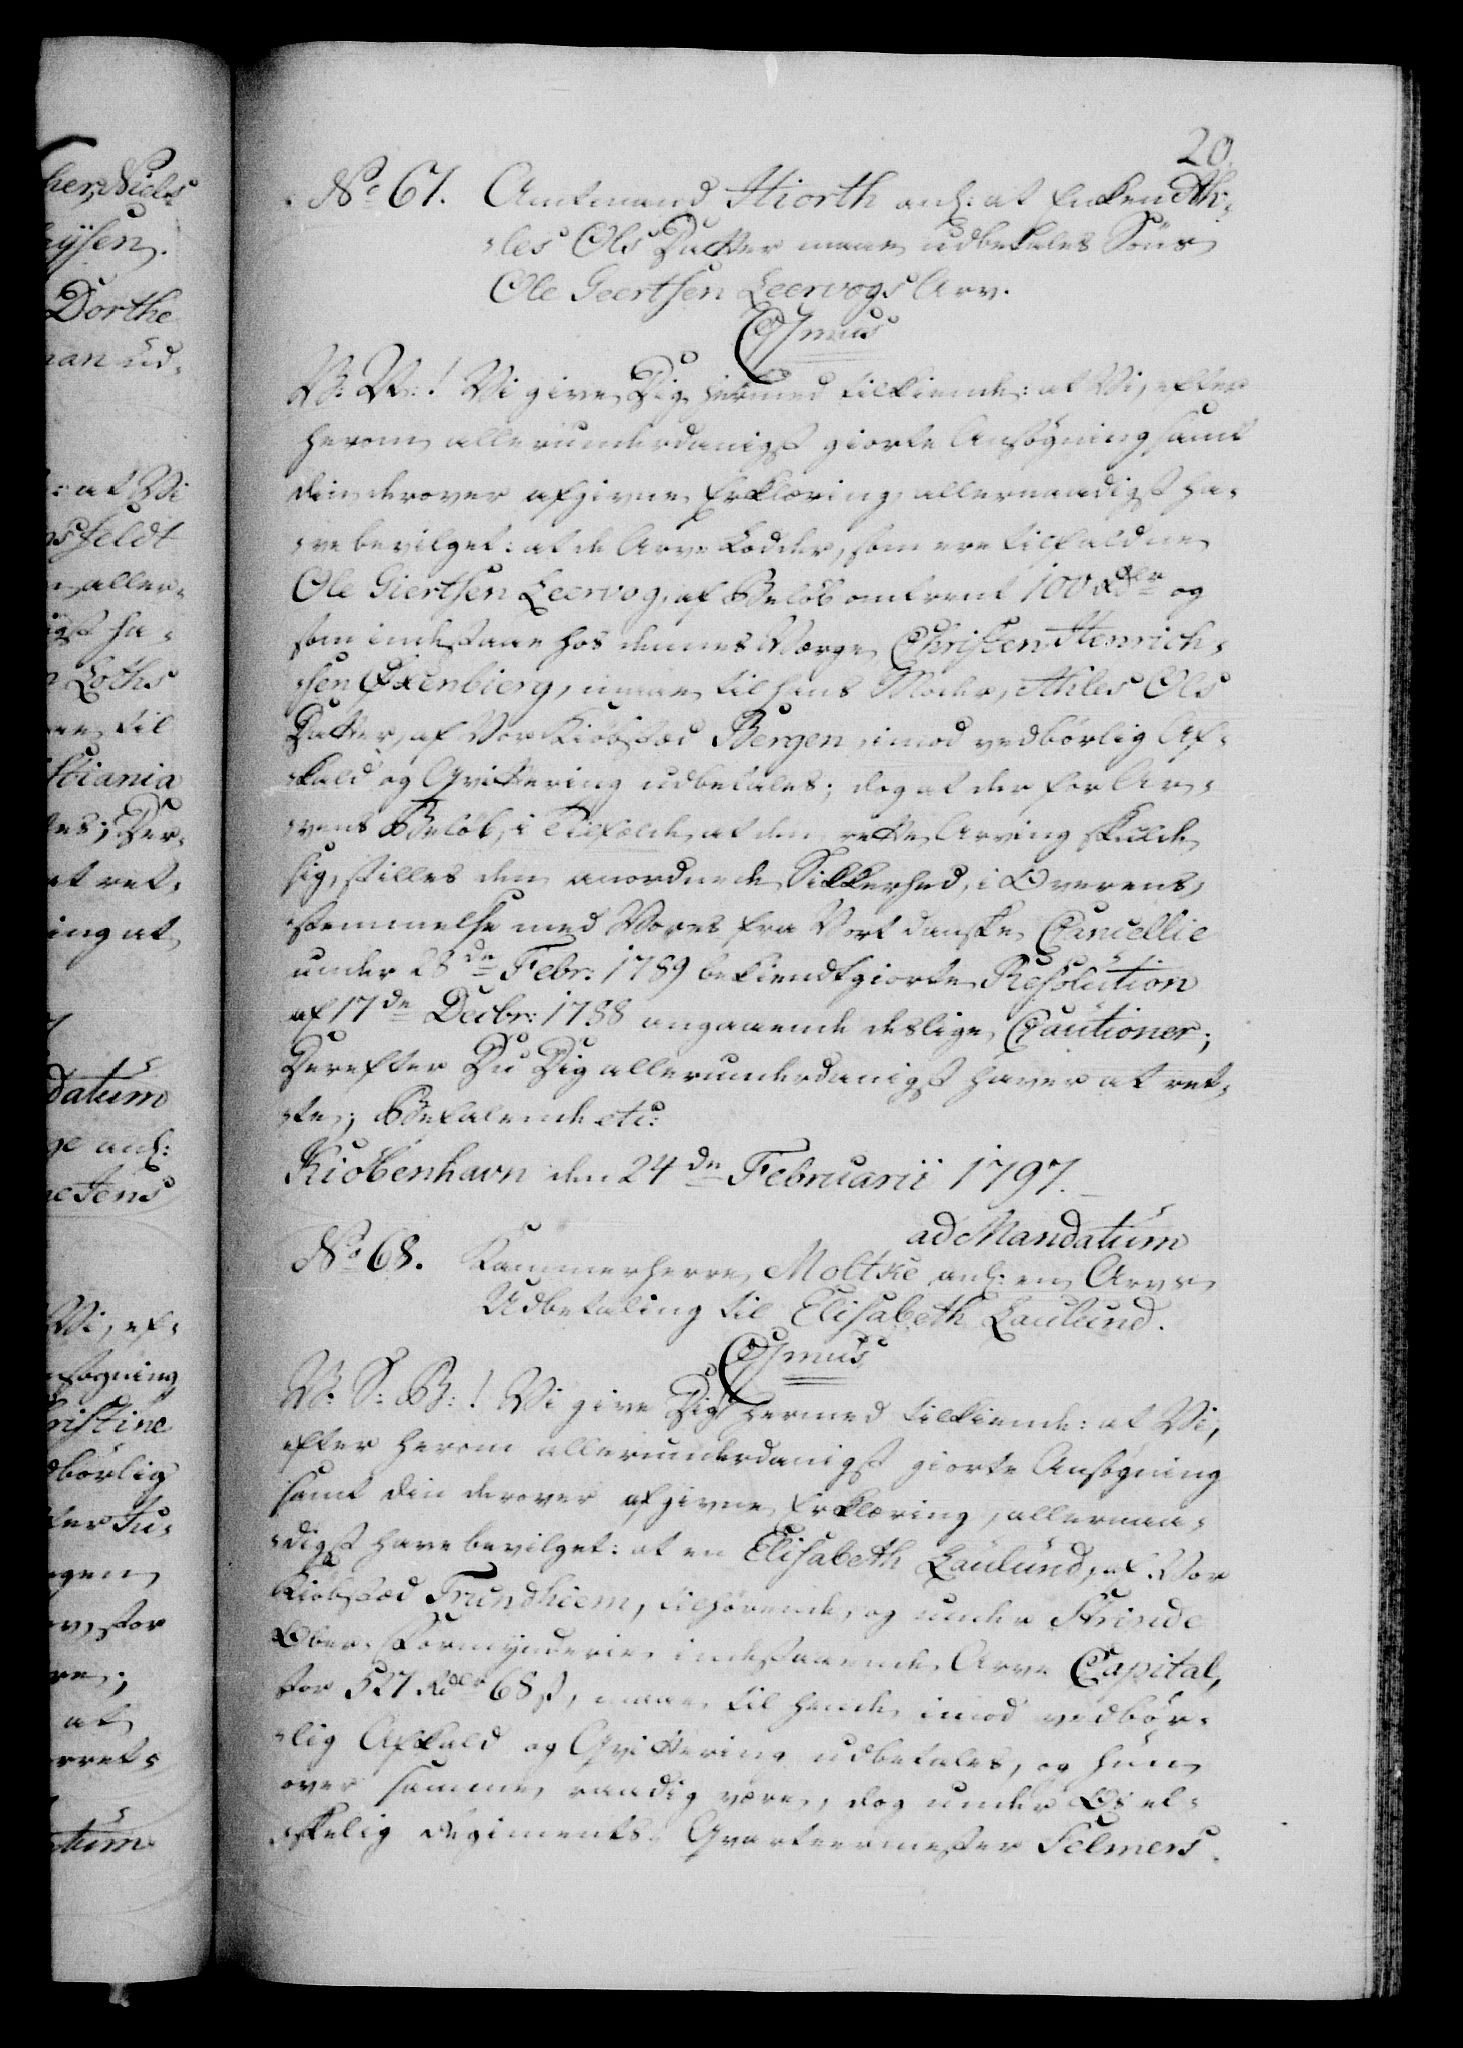 20.
No 67. Amtmand Hiorth anl: at Enken Ah-
-les Ols Datter maae udbetales Søns
Ole Geertsen Leervogs Arv.
CVJmus
V: V:! Vi give Dig hermed tilkiende: at Vi, efter
herom allerunderdanigst giorte Ansøgning samt
din derover afgivne Erklæring allernaadigst ha-
-ve bevilget: at de Arve Lodder, som ere tilfaldne
Ole Giertsen Leervog, af Beløb omtrent 100 Rdlr og
som indestaae hos dennes Værge Christen Henrich-
-sen Øxenbierg, maae til hans Moder, Ahles Ols
Datter, af Vor Kiøbstæd Bergen, imod vedbørlig Af-
-kald og Qvittering udbetales; dog at der for Ar-
-vens Beløb, i Tilfælde at den rette Arving skulde
sig, stilles den anordnede Sikkerhed, i Overens-
-stemmelse med Vores fra Vort danske Cancellie
under 28de Febr: 1789 bekiendtgiorte Resolution
af 17de Decbr: 1788 angaaende deslige Cautioner;
Derefter Du Dig allerunderdanigst haver at ret-
-te; Befalende etc:
Kiøbenhavn den 24de Februarii 1797.
ad Mandatum
No 68. Kammerherre Moltke anl: en Arvs
Udbetaling til Elisabeth Laulund.
CVJmus
V: S: B:! Vi give Dig hermed tilkiende: at Vi,
efter herom allerunderdanigst giorte Ansøgning
samt din derover afgivne Erklæring, allernaa-
-digst have bevilget: at en Elisabeth Laulund, af Vor
Kiøbstæd Trundhiem, tilhørende, og under Strinde
Ober-Formynderie indestaaende Arve Capital,
stor 527 Rdlr 68 s, maae til hende imod vedbør-
-lig Afkald og Qvittering udbetales, og hun
over samme raadig være, dog under Os el-
-skelig Regiments-Qvarteermester Selmers